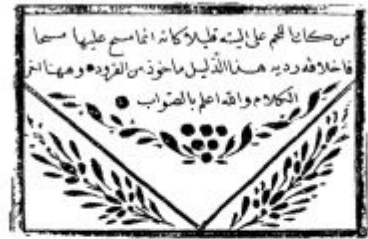 من كان اللحم على اليته قليلا كانه انما مسح عليها مسحا
فاخلافه رديه هذا الدليل ماخوذ من القرود وههنا اخر
الكلام والله اعلم بالصواب